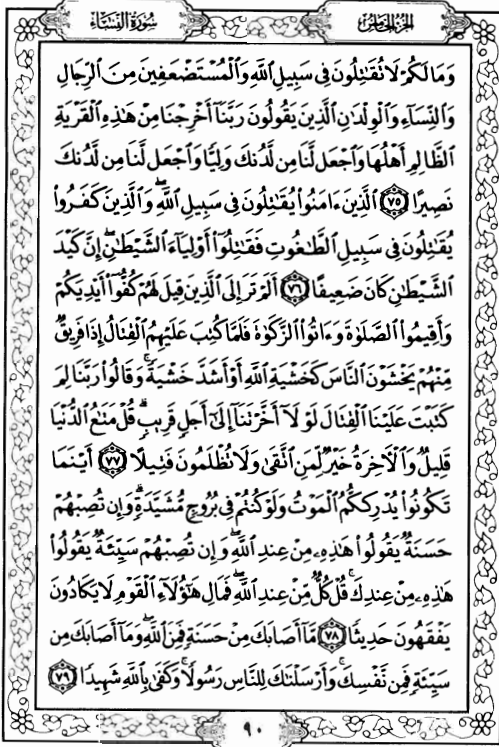 الجزء الخامس
سورة النساء
وَمَا لَكُمْ لَا تُقَٰتِلُونَ فِي سَبِيلِ ٱللَّهِ وَٱلْمُسْتَضْعَفِينَ مِنَ ٱلرِّجَالِ
وَٱلنِّسَآءِ وَٱلْوِلْدَٰنِ ٱلَّذِينَ يَقُولُونَ رَبَّنَآ أَخْرِجْنَا مِنْ هَٰذِهِ ٱلْقَرْيَةِ
ٱلظَّالِمِ أَهْلُهَا وَٱجْعَل لَّنَا مِن لَّدُنكَ وَلِيًّا وَٱجْعَل لَّنَا مِن لَّدُنكَ
نَصِيرًا ٧٥ ٱلَّذِينَ ءَامَنُوا۟ يُقَٰتِلُونَ فِي سَبِيلِ ٱللَّهِۖ وَٱلَّذِينَ كَفَرُوا۟
يُقَٰتِلُونَ فِي سَبِيلِ ٱلطَّٰغُوتِ فَقَٰتِلُوٓا۟ أَوْلِيَآءَ ٱلشَّيْطَٰنِۖ إِنَّ كَيْدَ
ٱلشَّيْطَٰنِ كَانَ ضَعِيفًا ٧٦ أَلَمْ تَرَ إِلَى ٱلَّذِينَ قِيلَ لَهُمْ كُفُّوٓا۟ أَيْدِيَكُمْ
وَأَقِيمُوا۟ ٱلصَّلَوٰةَ وَءَاتُوا۟ ٱلزَّكَوٰةَ فَلَمَّا كُتِبَ عَلَيْهِمُ ٱلْقِتَالُ إِذَا فَرِيقٌ
مِّنْهُمْ يَخْشَوْنَ ٱلنَّاسَ كَخَشْيَةِ ٱللَّهِ أَوْ أَشَدَّ خَشْيَةًۚ وَقَالُوا۟ رَبَّنَا لِمَ
كَتَبْتَ عَلَيْنَا ٱلْقِتَالَ لَوْلَآ أَخَّرْتَنَآ إِلَىٰٓ أَجَلٍ قَرِيبٍۗ قُلْ مَتَٰعُ ٱلدُّنْيَا
قَلِيلٌ وَٱلْءَاخِرَةُ خَيْرٌ لِّمَنِ ٱتَّقَىٰ وَلَا تُظْلَمُونَ فَتِيلًا ٧٧ أَيْنَمَا
تَكُونُوا۟ يُدْرِككُّمُ ٱلْمَوْتُ وَلَوْ كُنتُمْ فِي بُرُوجٍ مُّشَيَّدَةٍۗ وَإِن تُصِبْهُمْ
حَسَنَةٌ يَقُولُوا۟ هَٰذِهِۦ مِنْ عِندِ ٱللَّهِۖ وَإِن تُصِبْهُمْ سَيِّئَةٌ يَقُولُوا۟
هَٰذِهِۦ مِنْ عِندِكَۚ قُلْ كُلٌّ مِّنْ عِندِ ٱللَّهِۖ فَمَالِ هَٰٓؤُلَآءِ ٱلْقَوْمِ لَا يَكَادُونَ
يَفْقَهُونَ حَدِيثًا ٧٨ مَّآ أَصَابَكَ مِنْ حَسَنَةٍ فَمِنَ ٱللَّهِۖ وَمَآ أَصَابَكَ مِن
سَيِّئَةٍ فَمِن نَّفْسِكَۚ وَأَرْسَلْنَٰكَ لِلنَّاسِ رَسُولًاۚ وَكَفَىٰ بِٱللَّهِ شَهِيدًا ٧٩
٩٠